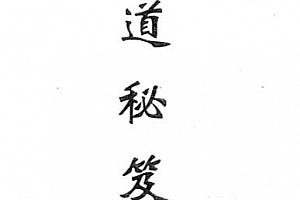 道秘笈